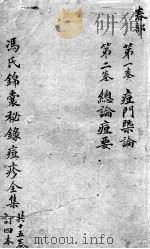 春部
第一卷 痘門槩論
第二卷 總論痘要
馮氏錦囊秘錄痘疹全集
共十五卷
訂四本